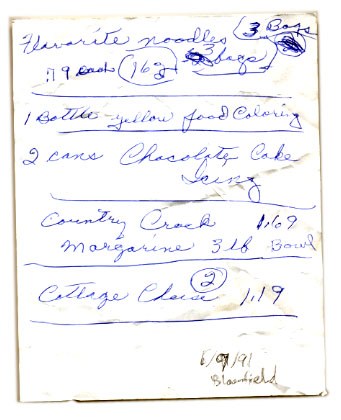 Flavorite noodles 3 Bags
79 each 16oz 3 bags
1 Bottle yellow food Coloring
2 cans Chocolate Cake
Icing
Country Crock 1.69
Margarine 3 lb Bowl
Cottage Cheise 2 1.19
/91
Bloomfield